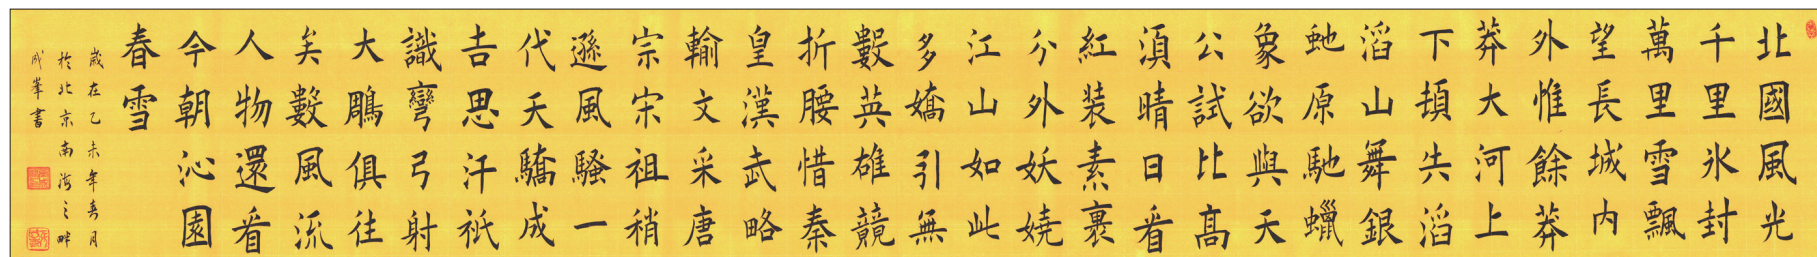 北國風光
千里氷封
萬里雪飄
望長城内
外惟餘莽
莽大河上
下頓失滔
滔山舞銀
虵原馳蠟
象欲與天
公試比高
湏晴日看
紅裝素裹
分外妖嬈
江山如此
多嬌引無
數英雄競
折腰惜秦
皇漢武略
輸文采唐
宗宋祖稍
遜風騷一
代天驕成
吉思汗祇
識彎弓射
大鵰俱往
矣數風流
人物還看
今朝沁園
春雪
歲在乙未年春月
於北京南海之畔
成峯書